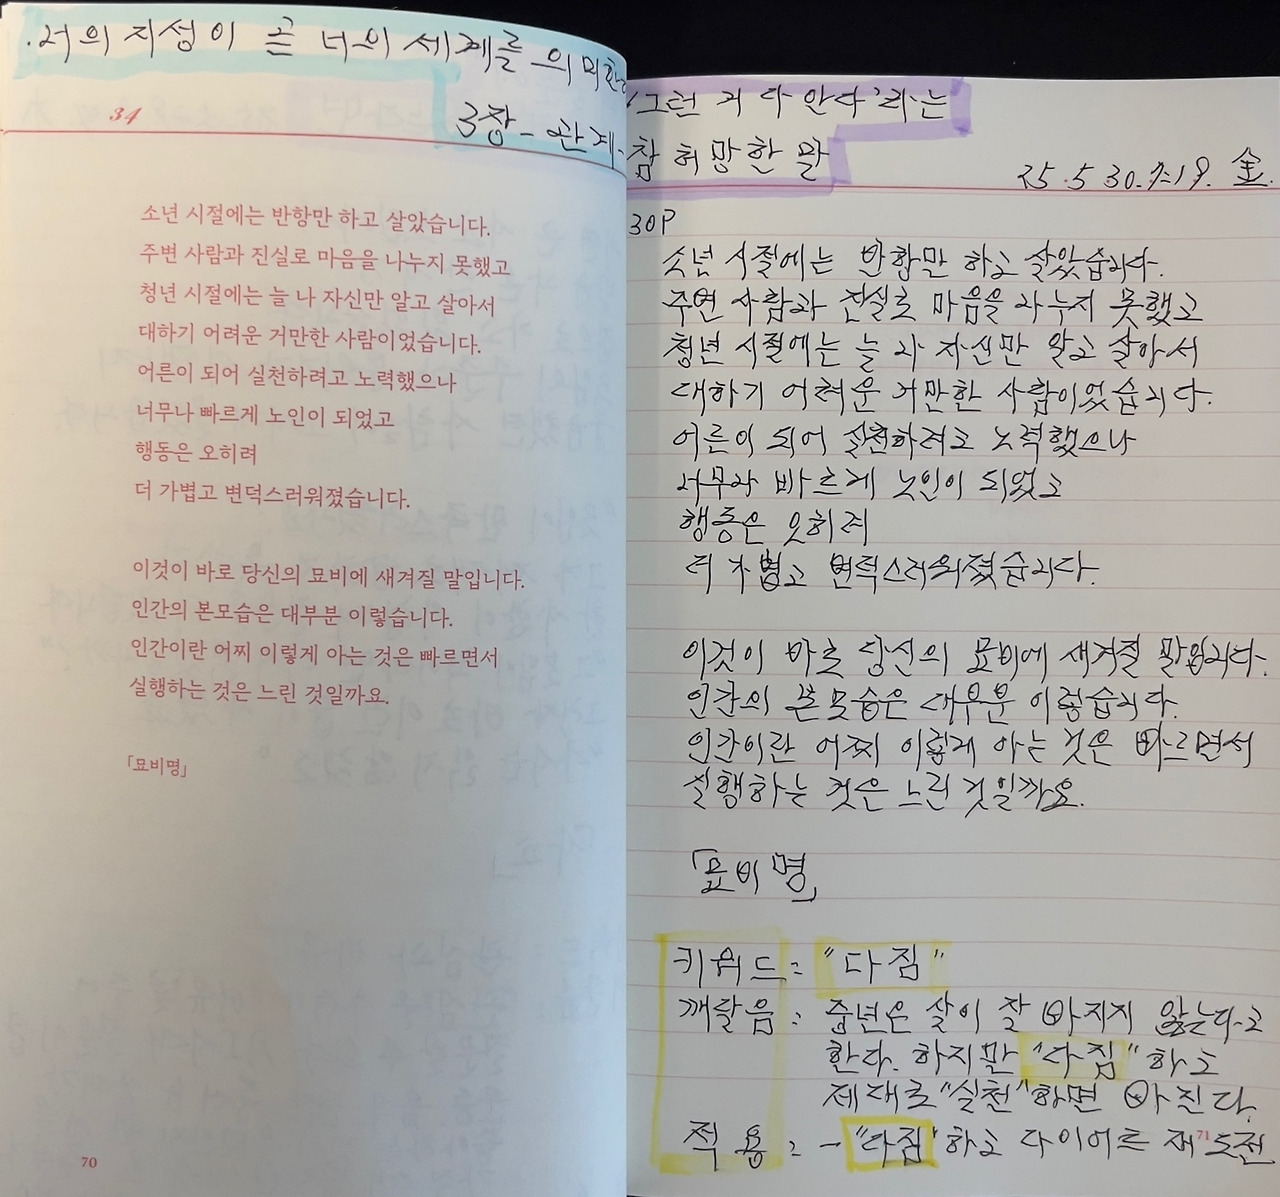 . 너의 지성이 곧 너의 세계를 의미한다
34
3장 - 관계 -
소년 시절에는 반항만 하고 살았습니다.
주변 사람과 진실로 마음을 나누지 못했고
청년 시절에는 늘 나 자신만 알고 살아서
대하기 어려운 거만한 사람이었습니다.
어른이 되어 실천하려고 노력했으나
너무나 빠르게 노인이 되었고
행동은 오히려
더 가볍고 변덕스러워졌습니다.
이것이 바로 당신의 묘비에 새겨질 말입니다.
인간의 본모습은 대부분 이렇습니다.
인간이란 어찌 이렇게 아는 것은 빠르면서
실행하는 것은 느린 것일까요.
「묘비명」
70
'그런 거 다 안다'라는
참 허망한 말
25.5.30.7:19. 金.
30P
소년 시절에는 반항만 하고 살았습니다.
주변 사람과 진실로 마음을 나누지 못했고
청년 시절에는 늘 나 자신만 알고 살아서
대하기 어려운 거만한 사람이었습니다.
어른이 되어 실천하려고 노력했으나
너무나 빠르게 노인이 되었고
행동은 오히려
더 가볍고 변덕스러워졌습니다.
이것이 바로 당신의 묘비에 새겨질 말입니다.
인간의 본모습은 대부분 이렇습니다.
인간이란 어찌 이렇게 아는 것은 빠르면서
실행하는 것은 느린 것일까요.
「묘비명」
키워드 : "다짐"
깨달음 : 중년은 살이 잘 빠지지 않는다고
한다. 하지만 "다짐"하고
제대로 "실천"하면 빠진다.
적용 : - "다짐"하고 다이어트 재도전
71